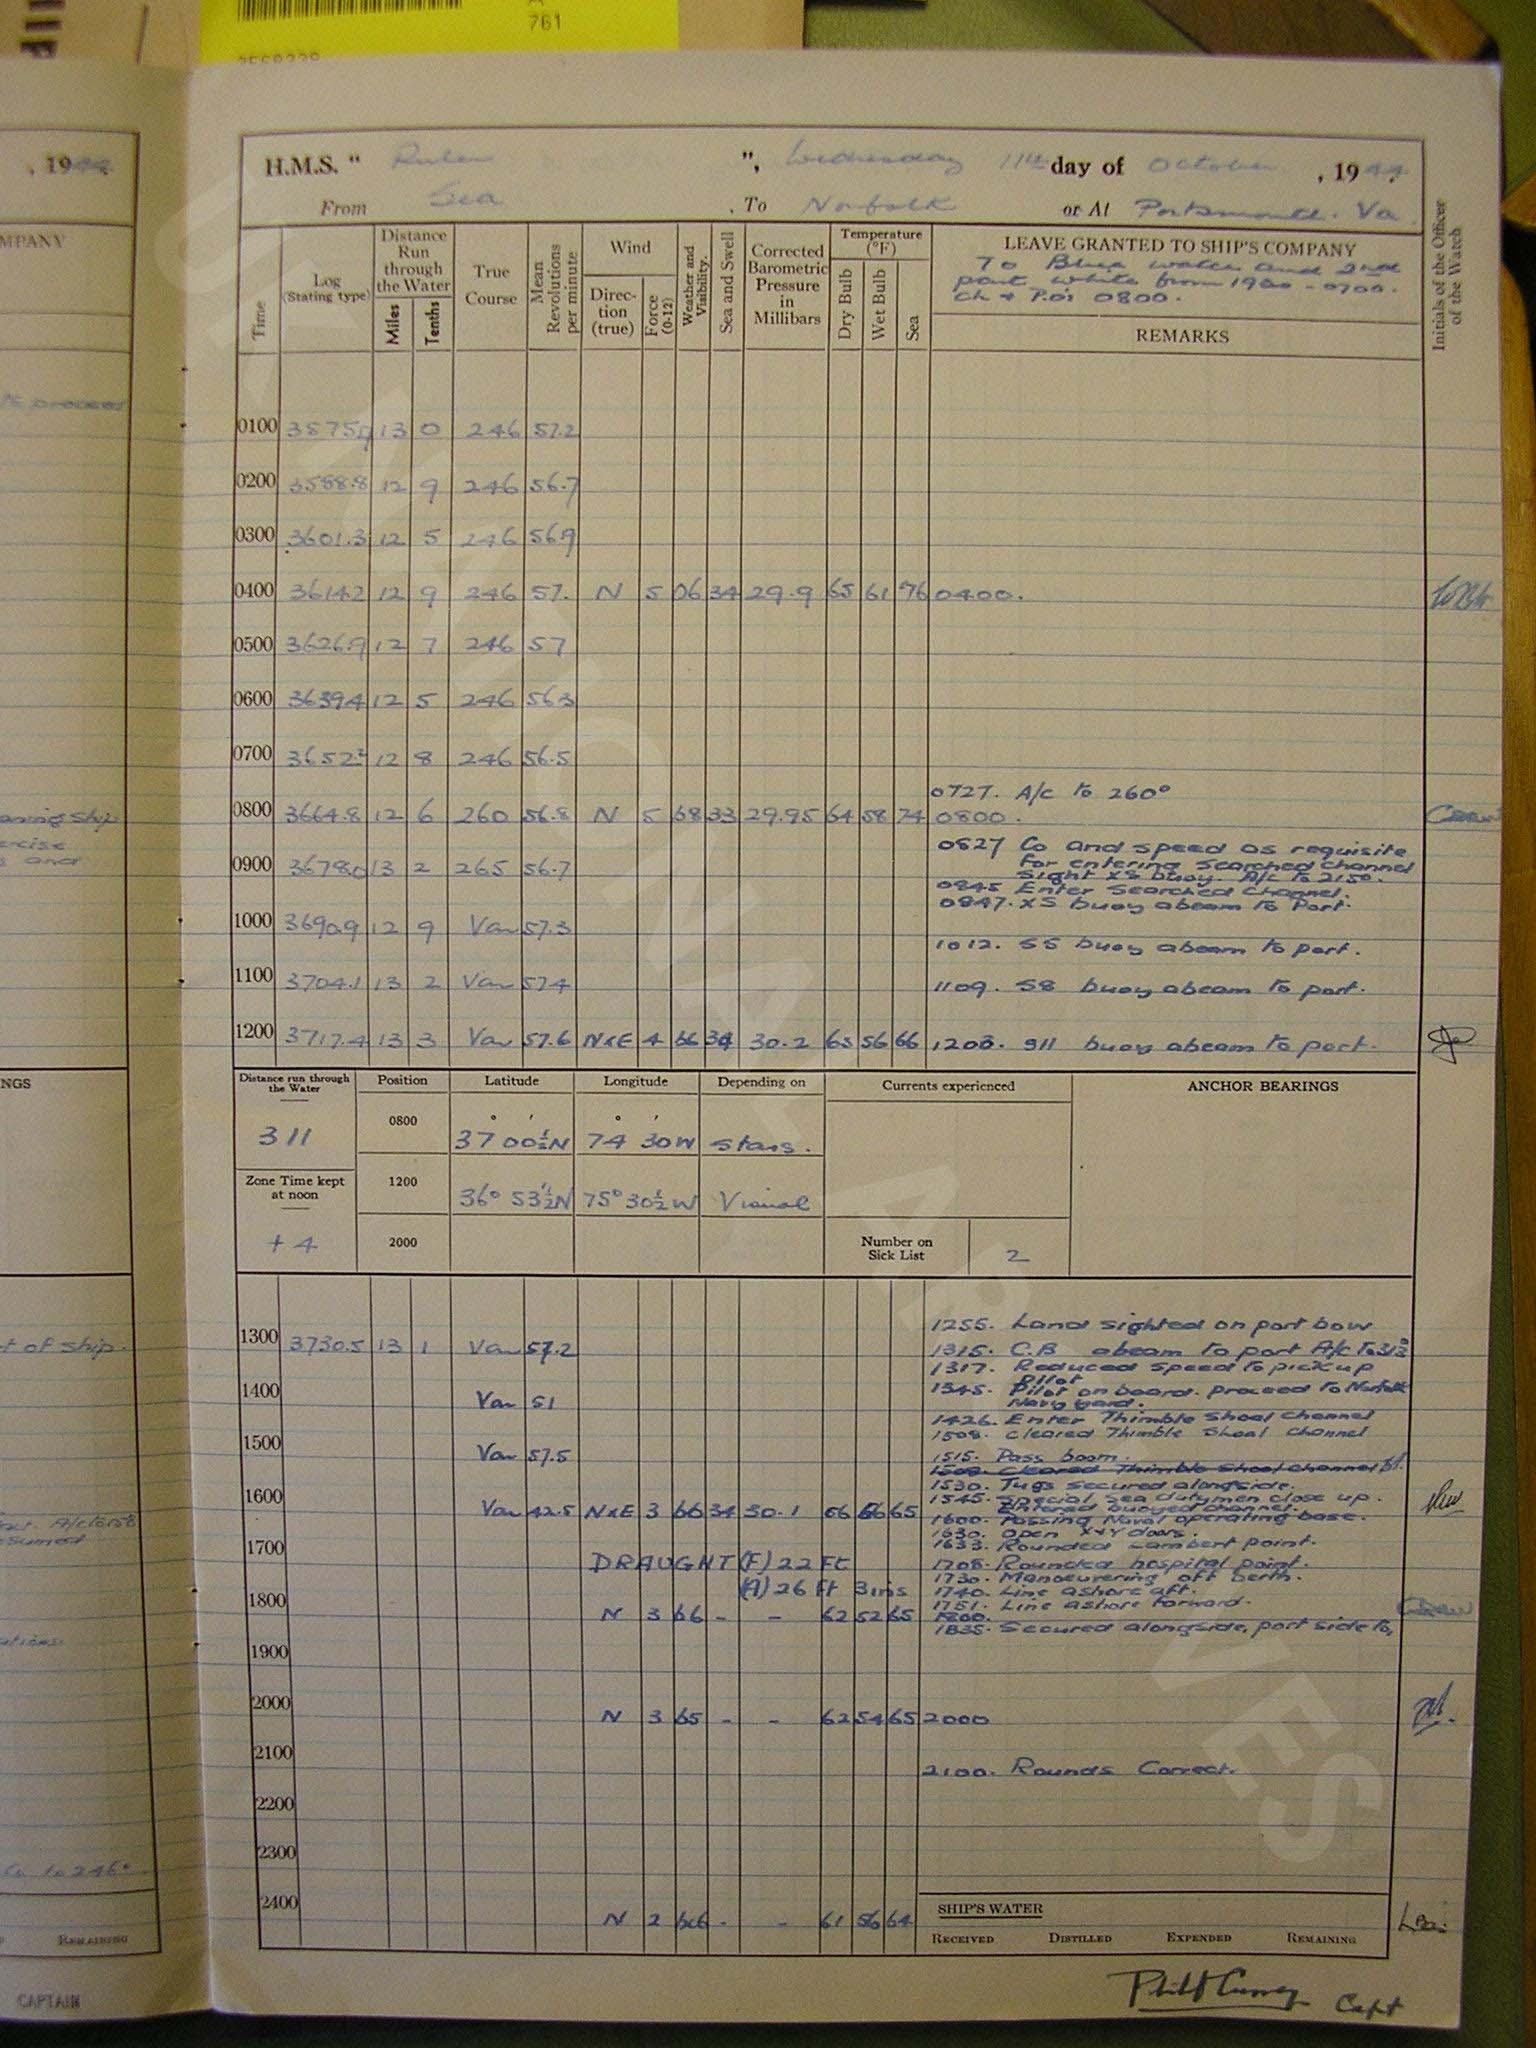 761
, 1944
H.M.S. " Ruler ", Wednesday 11th day of October , 1944.
From Sea , To Norfolk or At Portsmouth. Va.
COMPANY
Time
Log (Stating type)
Distance Run through the Water
Miles
Tenths
True Course
Mean Revolutions per minute
Wind
Direction (true)
Force (0-12)
Weather and Visibility.
Sea and Swell
Corrected Barometric Pressure in Millibars
Temperature (°F)
Dry Bulb
Wet Bulb
Sea
LEAVE GRANTED TO SHIP'S COMPANY
To Blue watch and 2nd
part White from 1900 - 0700.
Ch & P.O's 0800.
REMARKS
Initials of the Officer of the Watch
0100 3575.9 13 0 246 57.2
0200 3588.8 12 9 246 56.7
0300 3601.3 12 5 246 56.9
0400 3614.2 12 9 246 57. N 5 06 34 29.9 65 61 76 0400.
0500 3626.9 12 7 246 57
0600 3639.4 12 5 246 56.3
0700 3652.2 12 8 246 56.5
0727. A/c to 260°
0800 3664.8 12 6 260 56.8 N 5 68 33 29.95 64 58 74 0800.
0827 Co and speed as requisite
for entering Searched channel
Sight XS buoy. A/c to 215°.
0900 3678.0 13 2 265 56.7
0845 Enter Searched Channel.
0847. XS buoy abeam to Port.
1000 3690.9 12 9 Var 57.3
1012. S5 buoy abeam to port.
1100 3704.1 13 2 Var 57.4 1109. S8 buoy abeam to port.
1200 3717.4 13 3 Var 57.6 NxE 4 66 34 30.2 63 56 66 1203. S11 buoy abeam to port.
Distance run through the Water
311
Zone Time kept at noon
+ 4
Position Latitude Longitude Depending on
0800 37 00½N 74 30W Stars.
1200 36° 53½'N 75° 30½'W Visual
2000
Currents experienced
Number on Sick List 2
ANCHOR BEARINGS
1255. Land sighted on port bow
1300 3730.5 13 1 Var 57.2 1315. C.B abeam to port A/c to 313°
1317. Reduced speed to pick up
Pilot
1400 Var 51 1345. Pilot on board. proceed to Norfolk
Navy Yard.
1426. Enter Thimble Shoal Channel
1508. Cleared Thimble Shoal Channel
1500 Var 57.5 1515. Pass boom.
1508. Cleared Thimble Shoal Channel
1530. Tugs secured alongside.
1545. Special Sea dutymen close up.
Entered buoyed channel.
1600 Var 42.5 NxE 3 66 34 30.1 66 56 65 1600. Passing Naval operating base.
1630. Open X&Y doors.
1633. Rounded Lambert point.
1700 DRAUGHT (F) 22 Ft 1708. Rounded hospital point.
1730. Manoeuvering off berth.
(A) 26 Ft 3 ins 1740. Line ashore aft.
1751. Line ashore forward.
1800 N 3 66 - - 62 52 65 1800.
1835. Secured alongside, port side to,
1900
2000 N 3 65 - - 62 54 65 2000
2100 2100. Rounds Correct.
2200
2300
2400 N 2 bc6 - - 61 56 64
SHIP'S WATER
RECEIVED DISTILLED EXPENDED REMAINING
Capt
to proceed
ship
and
INGS
of ship.
Co to 246°
REMAINING
CAPTAIN
NATIONAL ARCHIVES